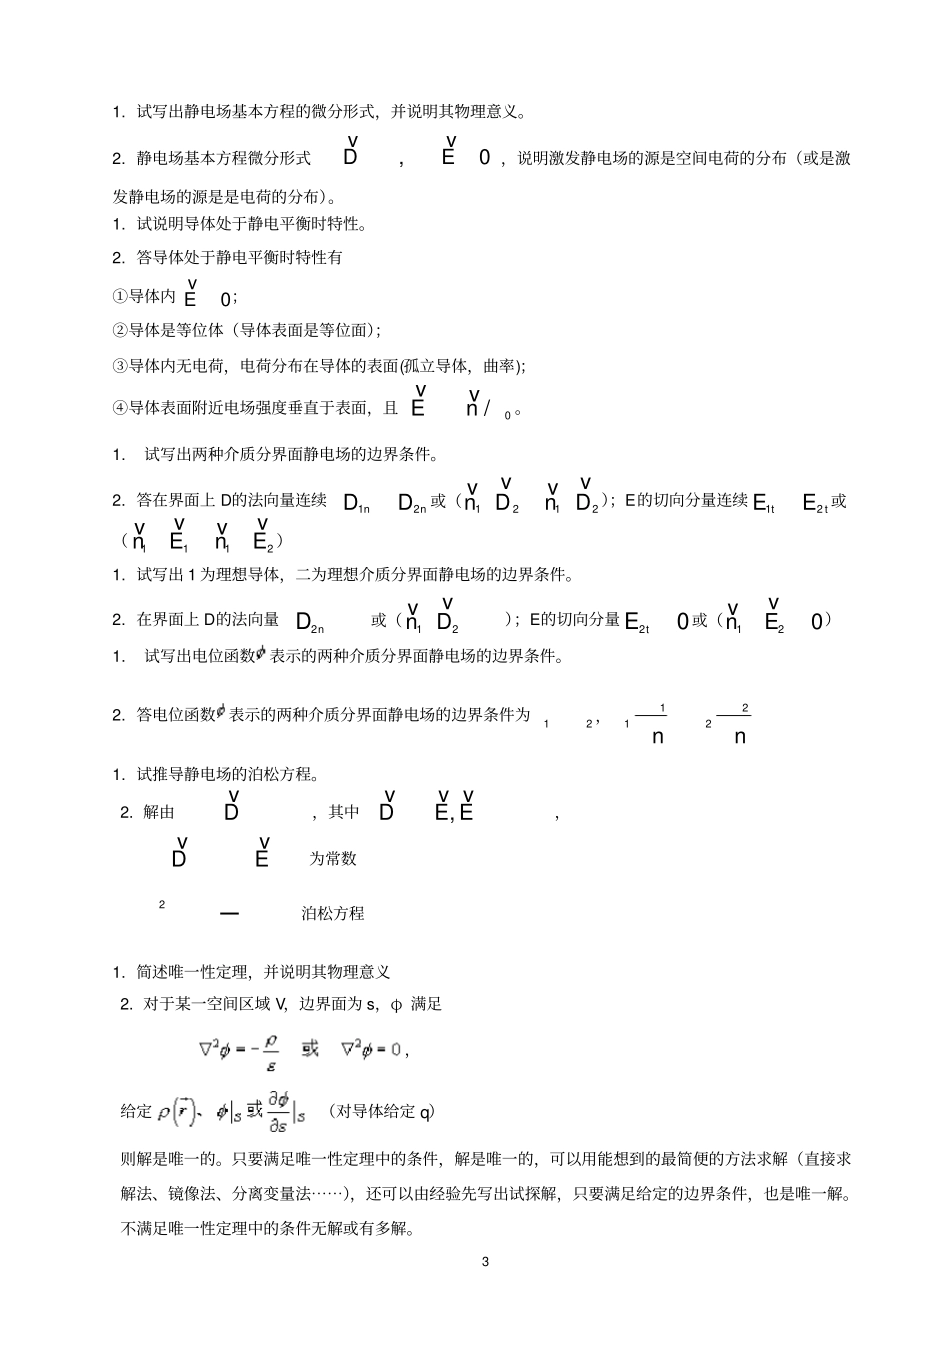 1．试写出静电场基本方程的微分形式，并说明其物理意义。
2．静电场基本方程微分形式 D , E 0 ，说明激发静电场的源是空间电荷的分布（或是激
发静电场的源是是电荷的分布）。
1．试说明导体处于静电平衡时特性。
2．答导体处于静电平衡时特性有
①导体内 E 0；
②导体是等位体（导体表面是等位面）；
③导体内无电荷，电荷分布在导体的表面(孤立导体，曲率)；
④导体表面附近电场强度垂直于表面，且 E n / 0 。
1． 试写出两种介质分界面静电场的边界条件。
2．答在界面上 D的法向量连续 D1n D2n 或（n1 D2 n1 D2）；E的切向分量连续 E1t E2t 或
（n1 E1 n1 E2）
1．试写出 1 为理想导体，二为理想介质分界面静电场的边界条件。
2．在界面上 D的法向量 D2n 或（n1 D2 ）；E的切向分量 E2t 0 或（n1 E2 0）
1． 试写出电位函数ϕ 表示的两种介质分界面静电场的边界条件。
2．答电位函数ϕ 表示的两种介质分界面静电场的边界条件为 1 2 ， 1 1/n 2 2/n
1．试推导静电场的泊松方程。
2．解由 D ，其中 D E, E ，
D E 为常数
2 — 泊松方程
1．简述唯一性定理，并说明其物理意义
2．对于某一空间区域 V，边界面为 s，φ 满足
∇²ϕ = -ρ/ε 或 ∇²ϕ = 0 ，
给定 ρ(r)、ϕ|S 或 ∂ϕ/∂s|S （对导体给定 q）
则解是唯一的。只要满足唯一性定理中的条件，解是唯一的，可以用能想到的最简便的方法求解（直接求
解法、镜像法、分离变量法……），还可以由经验先写出试探解，只要满足给定的边界条件，也是唯一解。
不满足唯一性定理中的条件无解或有多解。
3